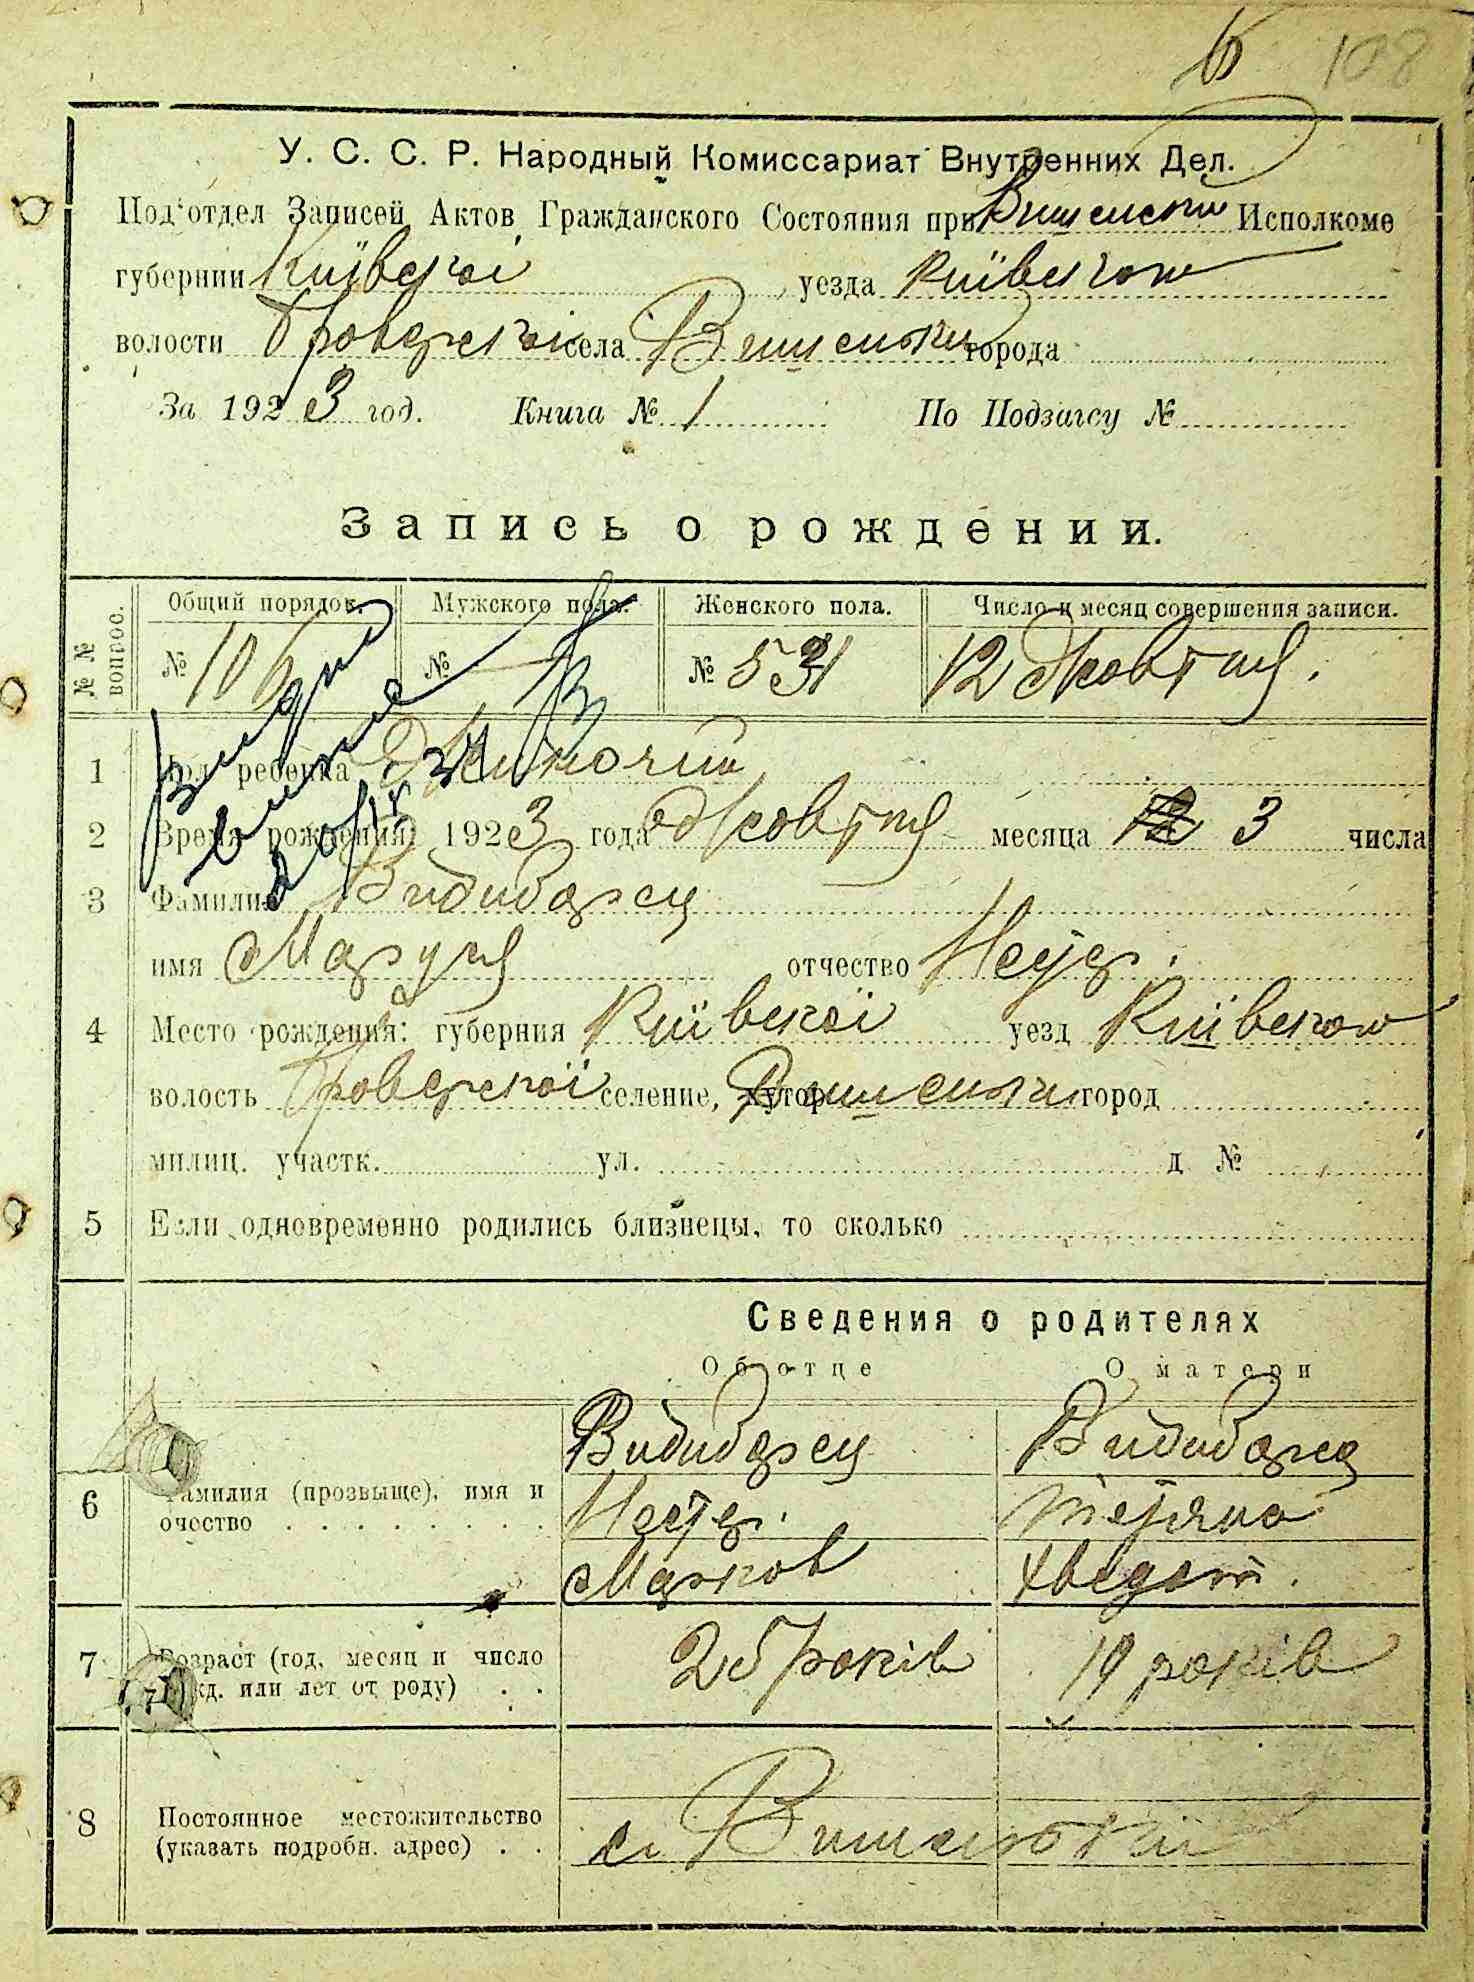 108
У. С. С. Р. Народный Комиссариат Внутренних Дел.
Под'отдел Записей Актов Гражданского Состояния при Вишеньком Исполкоме
губернии Київскої уезда Київського
волости Броварської села Вишеньки города
За 1923 год. Книга № 1 По Подзагсу №
Запись о рождении.
№№ вопрос.
Общий порядок. Мужского пола. Женского пола. Число и месяц совершения записи.
№ 106 № № 531 12 Жовтня.
1 Пол ребенка Жиночий
2 Время рождения 1923 года Жовтня месяца 3 числа
3 Фамилия Видиборец
имя Маруся отчество Нестер.
4 Место рождения: губерния Київскої уезд Київського
волость Броварскої селение, хутор Вишеньки город
милиц. участк. ул. д №
5 Если одновременно родились близнецы, то сколько
Сведения о родителях
Об отце О матери
Видиборец Видиборец
6 Фамилия (прозвыще), имя и Нестер. Тетяна
очество
Марков Хведот.
7 Возраст (год, месяц и число 25 років 19 років
рожд. или лет от роду)
8 Постоянное местожительство
(указать подробн. адрес) с. Вишеньки